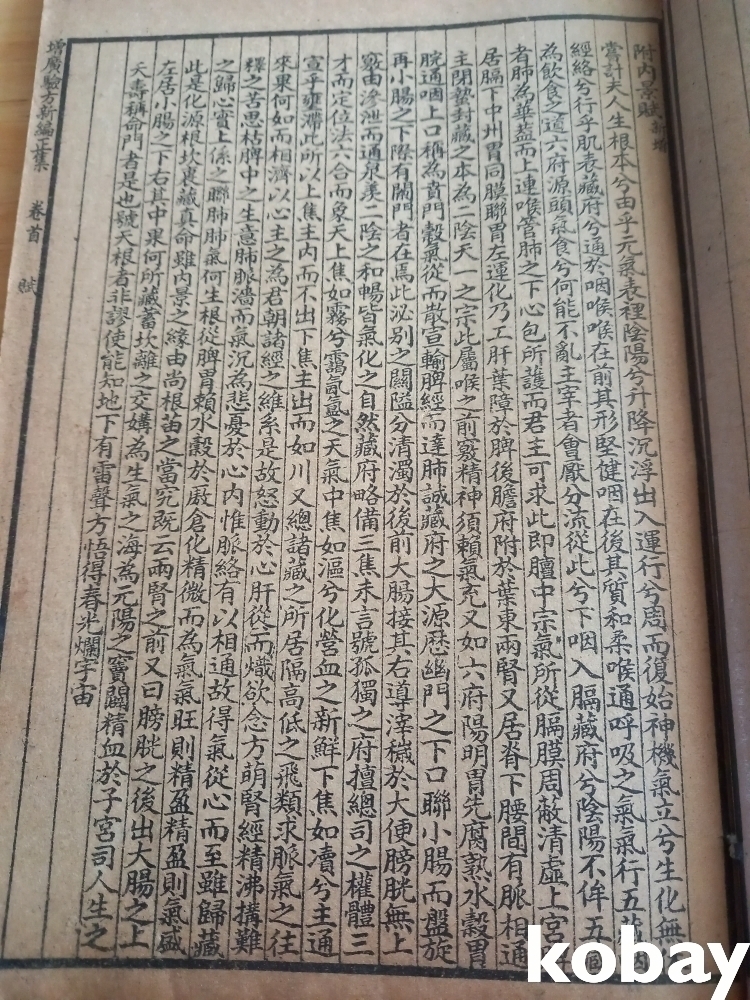 附內景賦新增
嘗計夫人生根本兮由乎元氣表裡陰陽兮升降沉浮出入運行兮周而復始神機氣立兮生化無
經絡兮行乎肌表藏府兮通於咽喉喉在前其形堅健咽在後其質和柔喉通呼吸之氣氣行五藏
為飲食之道六府源頭氣食兮何能不亂主宰者會厭分流從此兮下咽入膈藏府兮陰陽不侔五
者肺為華蓋而上連喉管肺之下心包所護而君主可求此即膻中宗氣所從膈膜周蔽清虛上宮
居膈下中州胃同膜聯胃左運化乃工肝葉障於脾後膽府附於葉東兩腎又居脊下腰間有脈相通
主閉蟄封藏之本為二陰天一之宗此屬喉之前竅精神須賴氣充又如六府陽明胃先腐熟水穀胃
脘通咽上口稱為賁門穀氣從而散宣輸脾經而達肺誠藏府之大源歷幽門之下口聯小腸而盤旋
再小腸之下際有闌門者在焉此泌別之關隘分清濁於後前大腸接其右導滓穢於大便膀胱無上
竅由滲泄而通泉羨二陰之和暢皆氣化之自然藏府略備三焦未言號孤獨之府擅總司之權體三
才而定位法六合而象天上焦如霧兮靄氤氳之天氣中焦如漚兮化營血之新鮮下焦如瀆兮主通
宣乎壅滯此所以上焦主內而不出下焦主出而如川又總諸藏之所居隔高低之飛類求脈氣之往
來果何如而相濟以心主之為君朝諸經之維系是故怒動於心肝從而熾欲念方萌腎經精沸搆難
釋之苦思枯脾中之生意肺脈濇而氣沉為悲憂於心內惟脈絡有以相通故得氣從心而至雖歸藏
之歸心實上係之聯肺肺氣何生根從脾胃賴水穀於廒倉化精微而為氣氣旺則精盈精盈則氣盛
此是化源根坎裏藏真命雖內景之緣由尚根苗之當究既云兩腎之前又曰膀胱之後出大腸之上
左居小腸之下右其中果何所藏蓄坎離之交媾為生氣之海為元陽之竇闢精血於子宮司人生之
夭壽稱命門者是也號天根者非謬使能知地下有雷聲方悟得春光爛宇宙
增廣驗方新編正集　卷首　賦
kobay